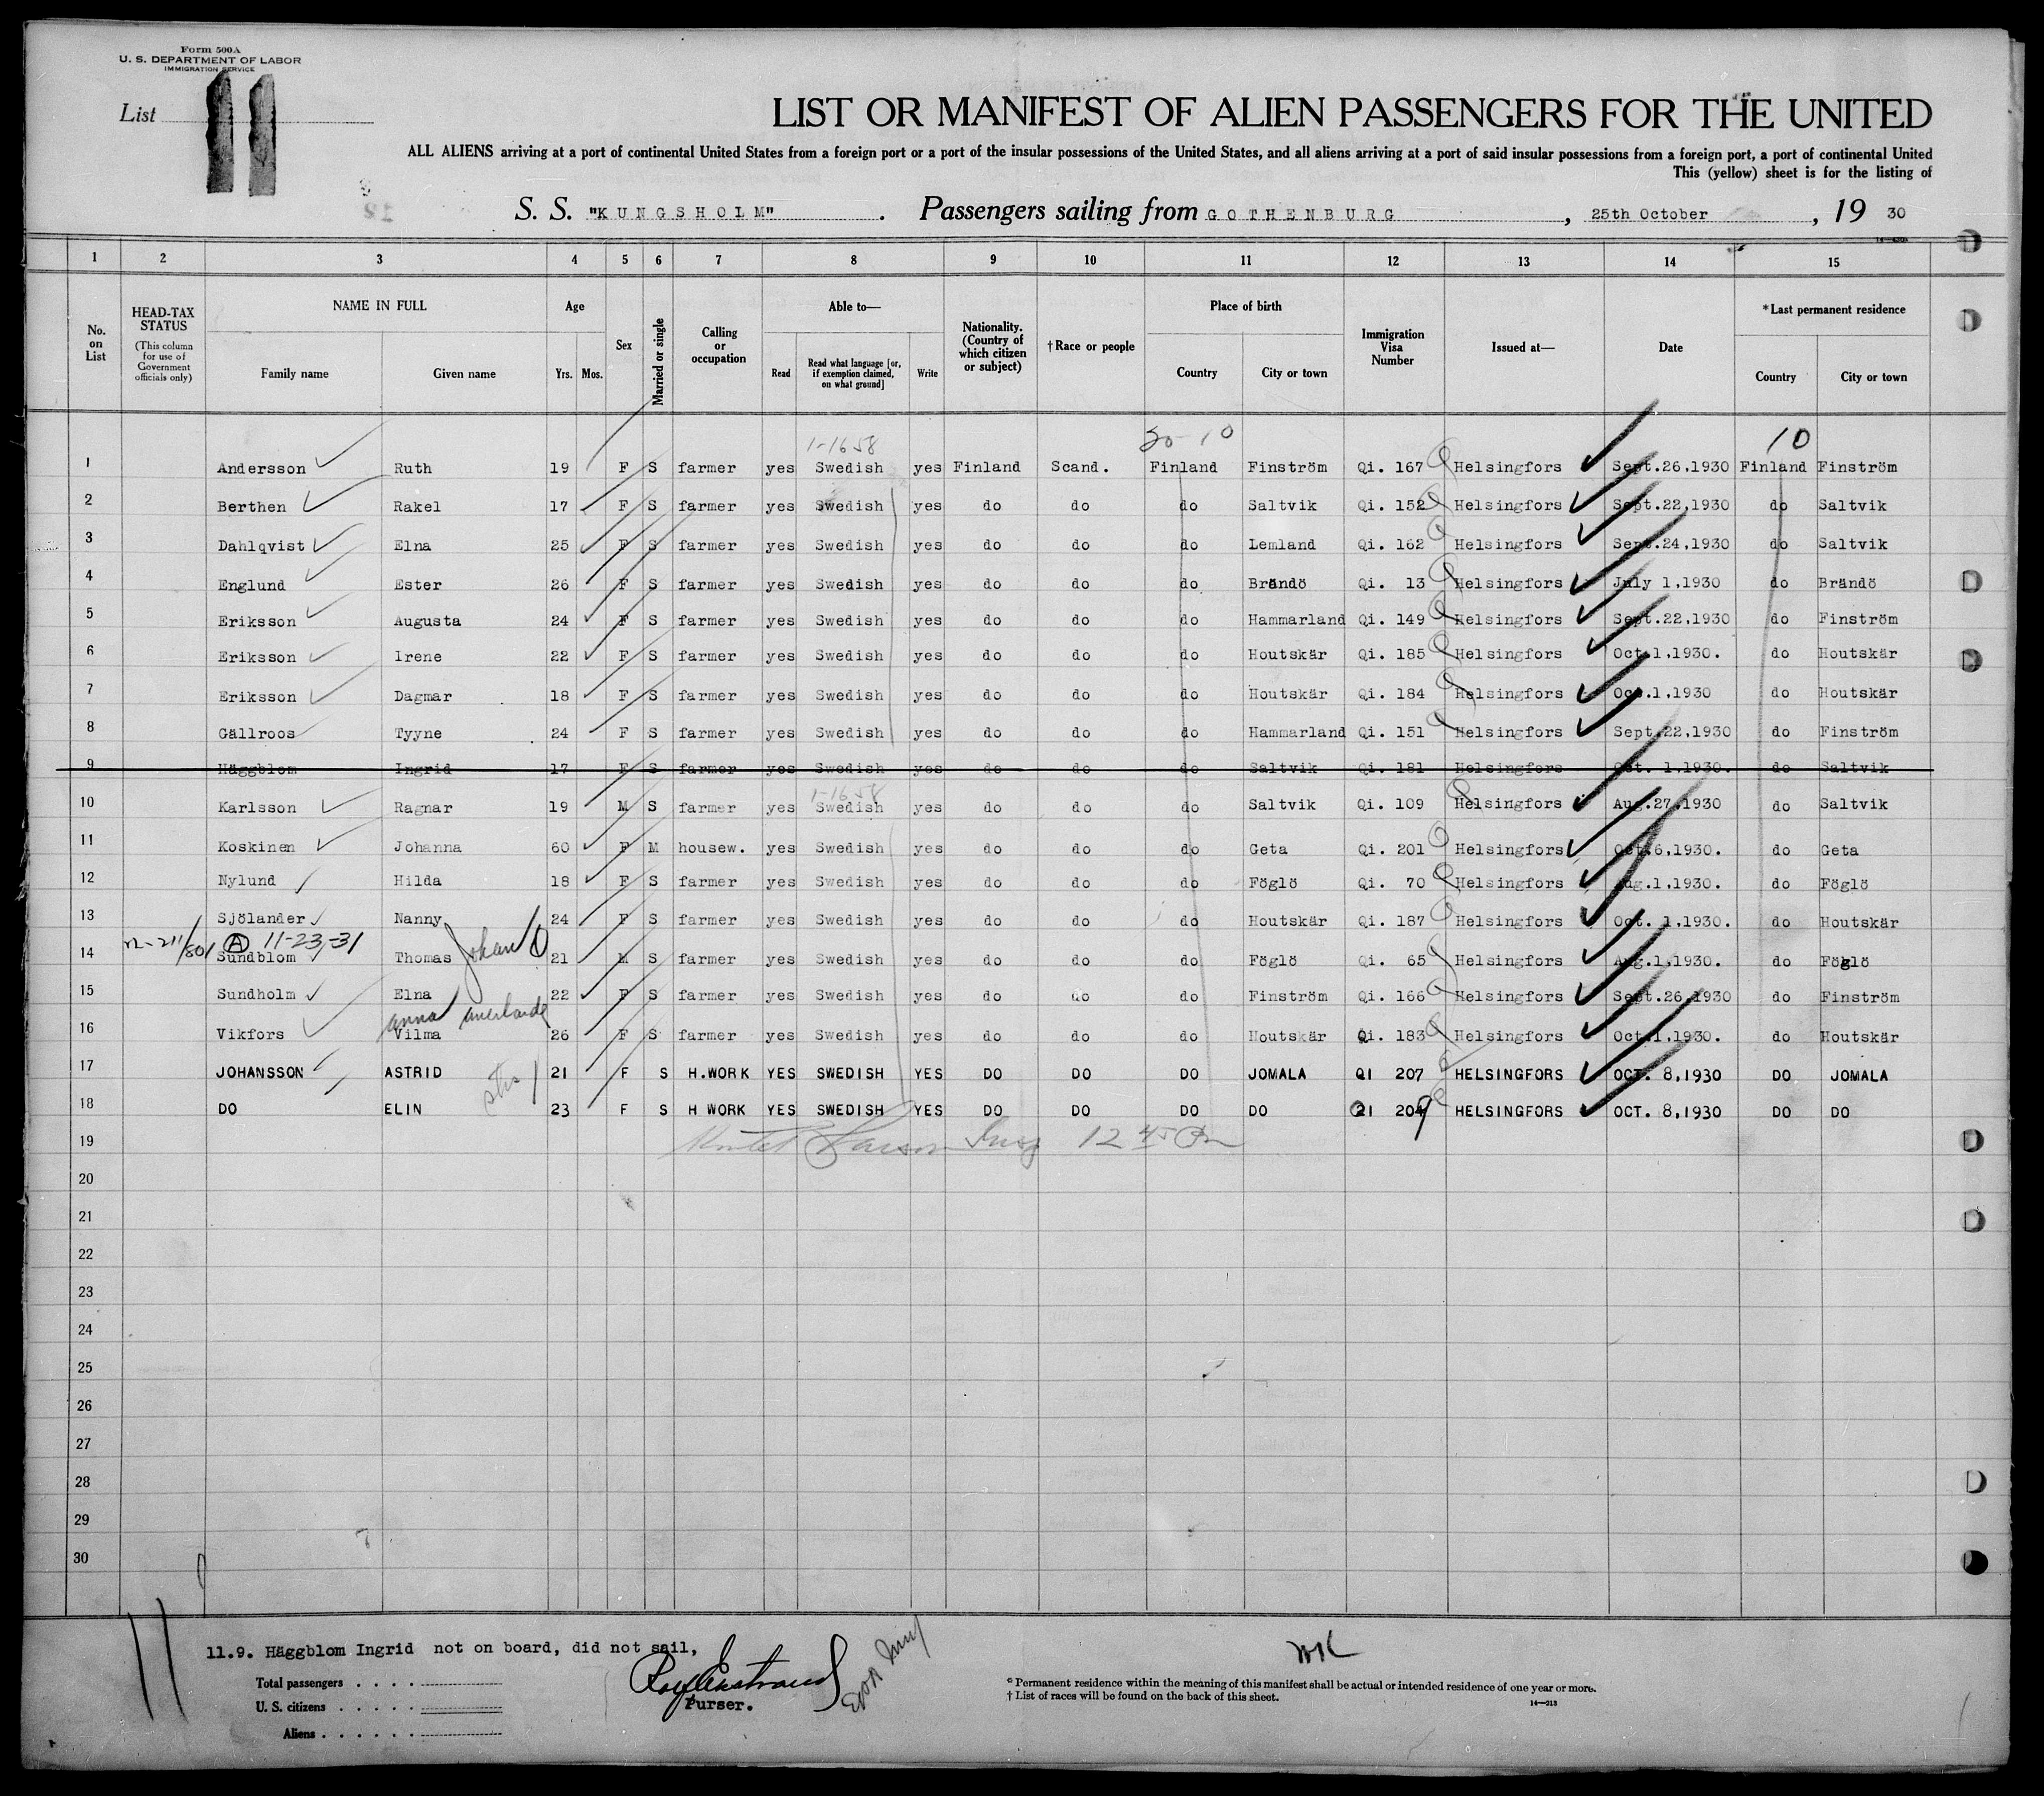 Form 500A
U. S. DEPARTMENT OF LABOR
IMMIGRATION SERVICE
List 11
LIST OR MANIFEST OF ALIEN PASSENGERS FOR THE UNITED
ALL ALIENS arriving at a port of continental United States from a foreign port or a port of the insular possessions of the United States, and all aliens arriving at a port of said insular possessions from a foreign port, a port of continental United
This (yellow) sheet is for the listing of
S. S. "KUNGSHOLM". Passengers sailing from GOTHENBURG, 25th October, 19 30
1 2 3 4 5 6 7 8 9 10 11 12 13 14 15
No. on List
HEAD-TAX STATUS (This column for use of Government officials only)
NAME IN FULL Family name Given name
Age Yrs. Mos.
Sex
Married or single
Calling or occupation
Able to— Read Read what language [or, if exemption claimed, on what ground] Write
Nationality. (Country of which citizen or subject)
†Race or people
Place of birth Country City or town
Immigration Visa Number
Issued at—
Date
*Last permanent residence Country City or town
1-1658 20 10 10
1 Andersson Ruth 19 F S farmer yes Swedish yes Finland Scand. Finland Finström Qi. 167 Helsingfors Sept.26,1930 Finland Finström
2 Berthen Rakel 17 F S farmer yes Swedish yes do do do Saltvik Qi. 152 Helsingfors Sept.22,1930 do Saltvik
3 Dahlqvist Elna 25 F S farmer yes Swedish yes do do do Lemland Qi. 162 Helsingfors Sept.24,1930 do Saltvik
4 Englund Ester 26 F S farmer yes Swedish yes do do do Brändö Qi. 13 Helsingfors July 1,1930 do Brändö
5 Eriksson Augusta 24 F S farmer yes Swedish yes do do do Hammarland Qi. 149 Helsingfors Sept.22,1930 do Finström
6 Eriksson Irene 22 F S farmer yes Swedish yes do do do Houtskär Qi. 185 Helsingfors Oct.1,1930. do Houtskär
7 Eriksson Dagmar 18 F S farmer yes Swedish yes do do do Houtskär Qi. 184 Helsingfors Oct.1,1930 do Houtskär
8 Gällroos Tyyne 24 F S farmer yes Swedish yes do do do Hammarland Qi. 151 Helsingfors Sept.22,1930 do Finström
9 Häggblom Ingrid 17 F S farmer yes Swedish yes do do do Saltvik Qi. 181 Helsingfors Oct. 1,1930. do Saltvik
1-1658
10 Karlsson Ragnar 19 M S farmer yes Swedish yes do do do Saltvik Qi. 109 Helsingfors Aug.27,1930 do Saltvik
11 Koskinen Johanna 60 F M housew. yes Swedish yes do do do Geta Qi. 201 Helsingfors Oct.6,1930. do Geta
12 Nylund Hilda 18 F S farmer yes Swedish yes do do do Föglö Qi. 70 Helsingfors Aug.1,1930. do Föglö
13 Sjölander Nanny 24 F S farmer yes Swedish yes do do do Houtskär Qi. 187 Helsingfors Oct. 1,1930. do Houtskär
A 11-23-31
14 Sundblom Thomas Johan 21 M S farmer yes Swedish yes do do do Föglö Qi. 65 Helsingfors Aug.1,1930. do Föglö
15 Sundholm Elna 22 F S farmer yes Swedish yes do do do Finström Qi. 166 Helsingfors Sept.26,1930 do Finström
anna
16 Vikfors Vilma 26 F S farmer yes Swedish yes do do do Houtskär Qi. 183 Helsingfors Oct.1,1930. do Houtskär
17 JOHANSSON ASTRID 21 F S H.WORK YES SWEDISH YES DO DO DO JOMALA QI 207 HELSINGFORS OCT. 8,1930 DO JOMALA
18 DO ELIN 23 F S H WORK YES SWEDISH YES DO DO DO DO QI 209 HELSINGFORS OCT. 8,1930 DO DO
19 Insp 12 45 Pm
20
21
22
23
24
25
26
27
28
29
30
11
11.9. Häggblom Ingrid not on board, did not sail,
Total passengers
U. S. citizens
Aliens
Purser.
* Permanent residence within the meaning of this manifest shall be actual or intended residence of one year or more.
† List of races will be found on the back of this sheet.
14—213